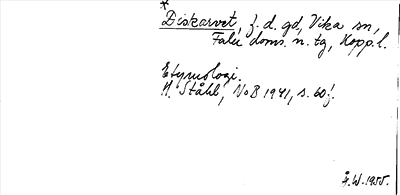 *
Diskarvet, f. d. gd, Vika sn,
Falu doms. n. tg, Kopp. l.
Etymologi.
H. Ståhl, NoB 1941, s. 60 f.
Å. W. 1955.